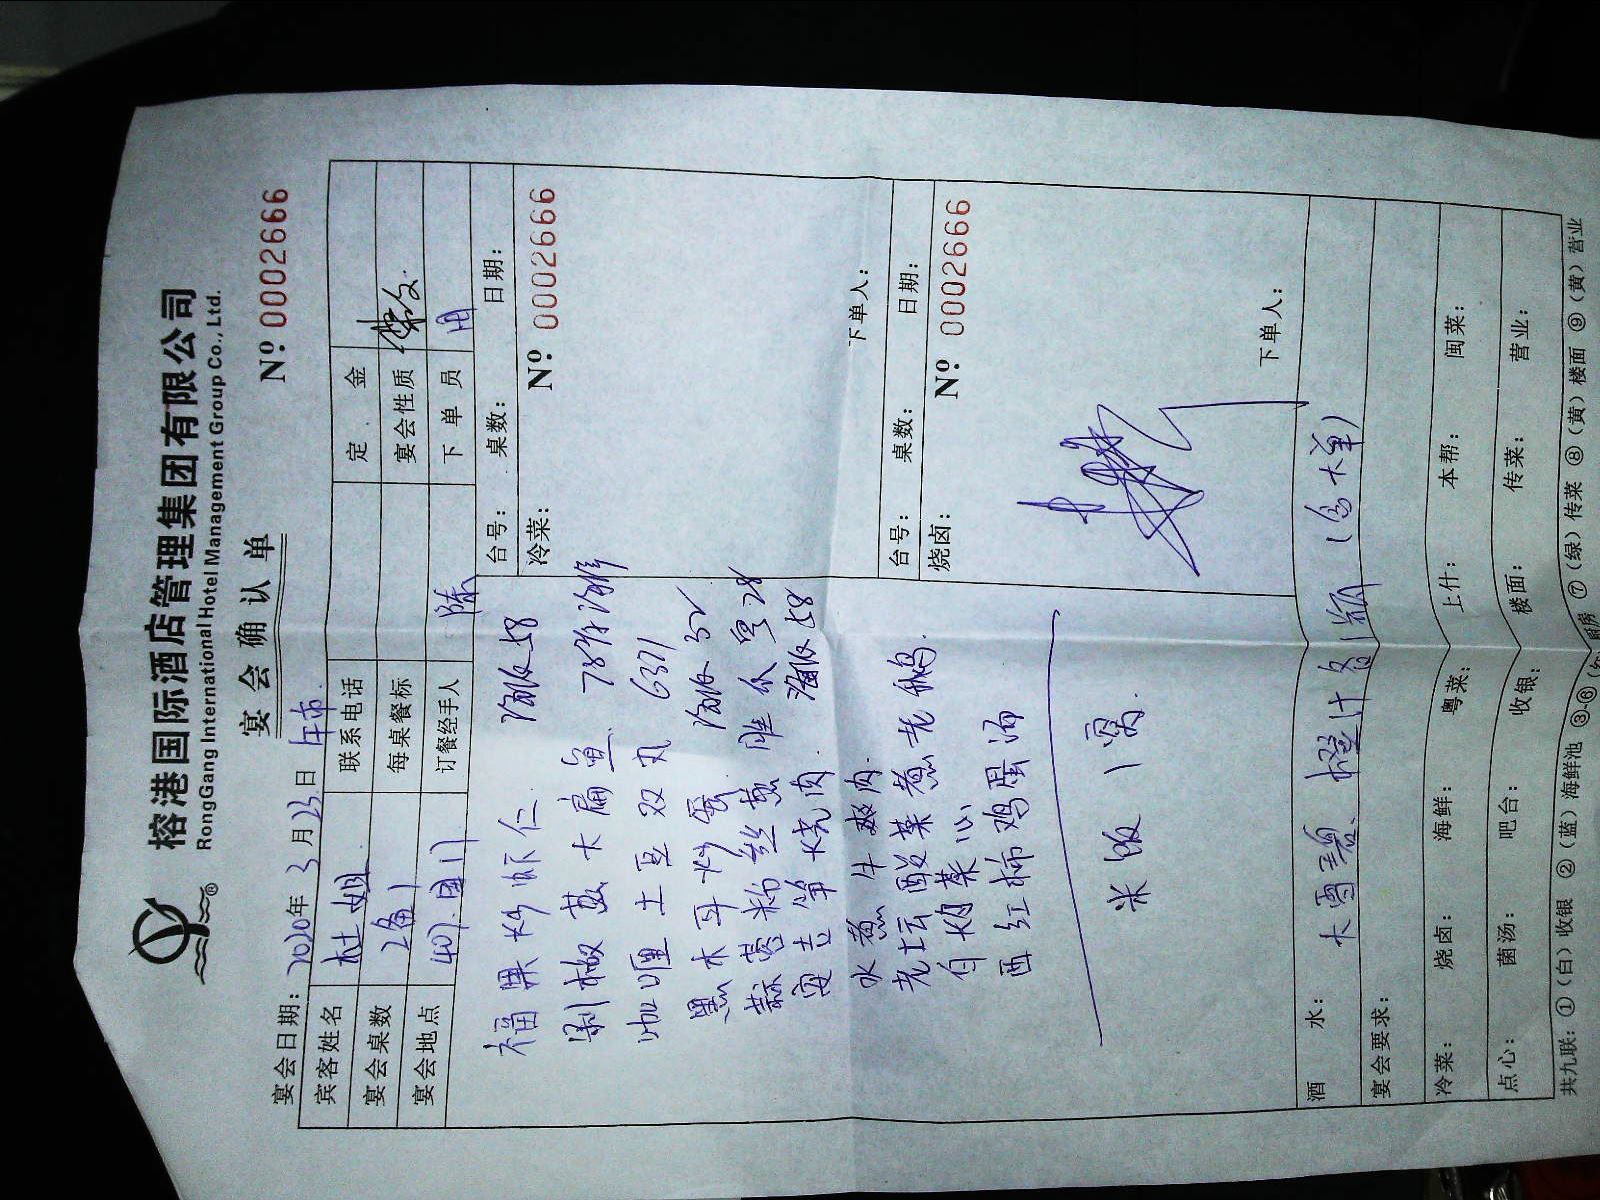 榕港国际酒店管理集团有限公司
RongGang International Hotel Management Group Co., Ltd.
宴会确认单
Nº 0002666
宴会日期：2020年3月23日 午市
宾客姓名 杜姐 联系电话 定金
宴会桌数 2备1 每桌餐标 宴会性质
宴会地点 订餐经手人 陈 下单员
福果炒虾仁 58
剁椒蒸大扁鱼 78
咖喱土豆双丸
黑木耳炒蛋 32
蒜蓉粉丝蒸 28
安吉笋烧肉 58
水煮牛爽肉
老坛酸菜煮老鹅
白灼菜心
西红柿鸡蛋汤
米饭1窝
台号： 桌数： 日期：
冷菜： Nº 0002666
下单人：
台号： 桌数： 日期：
烧卤： Nº 0002666
下单人：
酒水： 大雪碧、橙汁各1瓶
宴会要求：
冷菜： 烧卤： 海鲜： 粤菜： 上什： 本帮： 闽菜：
点心： 菌汤： 吧台： 收银： 楼面： 传菜： 营业：
共九联：①（白）收银 ②（蓝）海鲜池 ③-⑥ 厨房 ⑦（绿）传菜 ⑧（黄）楼面 ⑨（黄）营业